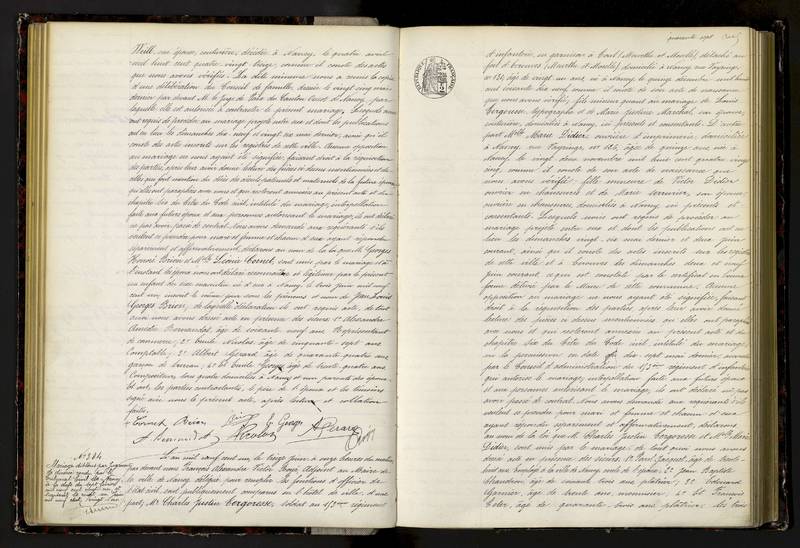 Weill, son épouse, couturière, décédée à Nancy, le quatre avril
mil huit cent quatre vingt treize, comme il conste des actes
que nous avons vérifiés. La dite mineure nous a remis la copie
d'une délibération du Conseil de famille, dressée le vingt mai
dernier par devant M. le Juge de Paix du Canton Ouest de Nancy, par
laquelle elle est autorisée à contracter le présent mariage. Lesquels nous
ont requis de procéder au mariage projeté entre eux et dont les publications
ont eu lieu les dimanches dix neuf et vingt six mai dernier, ainsi qu'il
conste des actes inscrits sur les registres de cette ville. Aucune opposition
au mariage ne nous ayant été signifiée, faisant droit à la réquisition
des parties, après leur avoir donné lecture des pièces ci dessus mentionnées
qu'ils ont paraphées avec nous et qui resteront annexées au présent acte et du
chapitre six du titre du Code civil, intitulé du mariage, interpellation
faite aux futurs époux et aux personnes autorisant le mariage, ils ont déclaré
ne pas avoir passé de contrat. Nous avons demandé aux requérants s'ils
veulent se prendre pour mari et femme et chacun d'eux ayant répondu
séparément et affirmativement, déclarons au nom de la loi que M. Georges
Honoré Brion et Mlle Léonie Cornet, sont unis par le mariage et à
l'instant les époux nous ont déclaré reconnaître et légitimer par le présent
un enfant du sexe masculin né d'eux à Nancy, le trois juin mil neuf
cent un, inscrit le même jour sous les prénoms et nom de Jean Louis
Georges Brion, de laquelle déclaration ils ont requis acte, de tout
quoi nous avons dressé acte en présence des sieurs: 1° Alexandre
Amédée Bernardot, âgé de soixante neuf ans Représentant
de commerce; 2° Emile Nicolas, âgé de cinquante sept ans
Comptable; 3° Albert Gérard, âgé de quarante quatre ans
garçon de bureau; 4° et Emile Georges, âgé de trente quatre ans
Compositeur, tous quatre domiciliés à Nancy et non parents des époux.
Et ont, les parties contractantes, le père de l'époux et les témoins
signé avec nous le présent acte, après lecture et collation
faites.
Cornet Brion Brion G Georges
A Bernardot Nicolas A Gérard
N° 384
L'an mil neuf cent un, le vingt juin, à onze heures du matin
par devant nous François Alexandre Victor Boyé, Adjoint au Maire de
la ville de Nancy délégué pour remplir les fonctions d'officier de
l'état civil, sont publiquement comparus en l'hôtel de ville, d'une
part, Mr Charles Justin Cergoresse, soldat au 153me régiment
quarante sept
RÉPUBLIQUE FRANÇAISE
d'infanterie, en garnison à Toul (Meurthe et Moselle), détaché au
fort d'Ecrouves (Meurthe et Moselle), domicilié à Nancy, rue Vayringe,
n° 124, âgé de vingt un ans, né à Nancy, le quinze décembre mil huit
cent soixante dix neuf, comme il conste de son acte de naissance
que nous avons vérifié, fils mineur quant au mariage de Louis
Cergoresse, typographe et de Marie Justine Marchal, son épouse,
couturière, domiciliés à Nancy, ici présents et consentants. D'autre
part Mlle Marie Didier, ouvrière d'imprimerie, domiciliée
à Nancy, rue Vayringe, n° 126, âgée de quinze ans, née à
Nancy, le vingt deux novembre mil huit cent quatre vingt
cinq, comme il conste de son acte de naissance que
nous avons vérifié, fille mineure de Victor Didier
ouvrier en chaussures et de Marie Serrurier, son épouse,
ouvrière en chaussures, domiciliés à Nancy, ici présents et
consentants. Lesquels nous ont requis de procéder au
mariage projeté entre eux et dont les publications ont eu
lieu les dimanches vingt six mai dernier et deux juin
courant, ainsi qu'il conste des actes inscrits sur les registres
de cette ville et à Ecrouves les dimanches deux et neuf
juin courant, ce qui est constaté par le certificat en bonne
forme délivré par le Maire de cette commune. Aucune
opposition au mariage ne nous ayant été signifiée, faisant
droit à la réquisition des parties après leur avoir donné
lecture des pièces ci dessus mentionnées qu'elles ont paraphées
avec nous et qui resteront annexées au présent acte et du
chapitre six du titre du Code civil, intitulé du mariage,
vu la permission en date du dix sept mai dernier, accordée
par le Conseil d'administration du 153me régiment d'infanterie
qui autorise le mariage, interpellation faite aux futurs époux
et aux personnes autorisant le mariage, ils ont déclaré ne pas
avoir passé de contrat. Nous avons demandé aux requérants s'ils
veulent se prendre pour mari et femme et chacun d'eux
ayant répondu séparément et affirmativement, déclarons
au nom de la loi que M. Charles Justin Cergoresse et Mlle Marie
Didier, sont unis par le mariage. De tout quoi nous avons
dressé acte en présence des sieurs: 1° Jacquot, âgé de trente
huit ans, employé à la ville de Nancy, oncle de l'époux; 2° Jean Baptiste
Chaudron, âgé de cinquante trois ans, platrier; 3° Edouard
Garnier, âgé de trente ans, menuisier; 4° et François
Coter, âgé de quarante trois ans, platrier; les trois